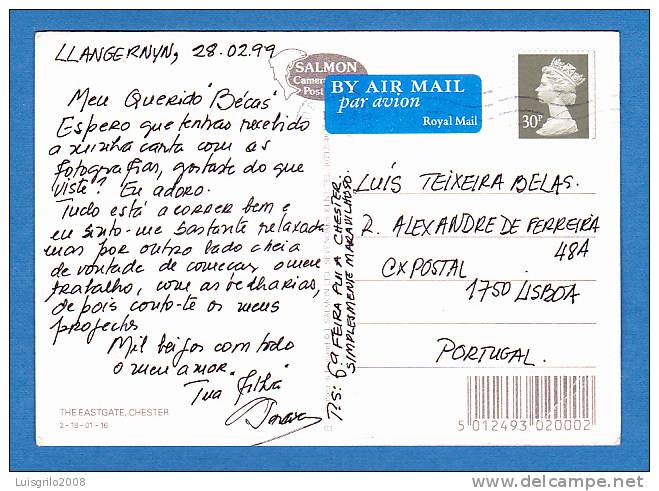 LLANGERNYN, 28.02.99
Meu Querido "Bécas"
Espero que tenhas recebido
a minha carta com as
fotografias, gostaste do que
viste? Eu adoro.
Tudo está a correr bem e
eu sinto-me bastante relaxada
mas por outro lado cheia
de vontade de começar o meu
trabalho, com as velharias,
depois conto-te os meus
projectos
Mil beijos com todo
o meu amor.
Tua filha
THE EASTGATE, CHESTER
2-18-01-16
SALMON
BY AIR MAIL
par avion
Royal Mail
30P
P.S: 5ª FEIRA FUI A CHESTER.
SIMPLESMENTE MARAVILHOSO.
LUÍS TEIXEIRA BELAS.
R. ALEXANDRE DE FERREIRA
48A
CX POSTAL
1750 LISBOA
PORTUGAL.
5 012493 020002
Luisgrilo2008
delcampe.net